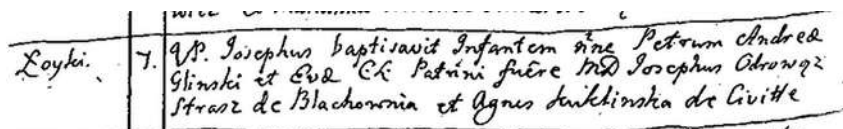 Łoyki. 7. qP. Josephus baptisavit Infantem nĩne Petrum Andreæ
Glinski et Evæ CL Patrini fuêre MD Josephus Odrowąz
Strasz de Blachownia et Agnes de Civitte